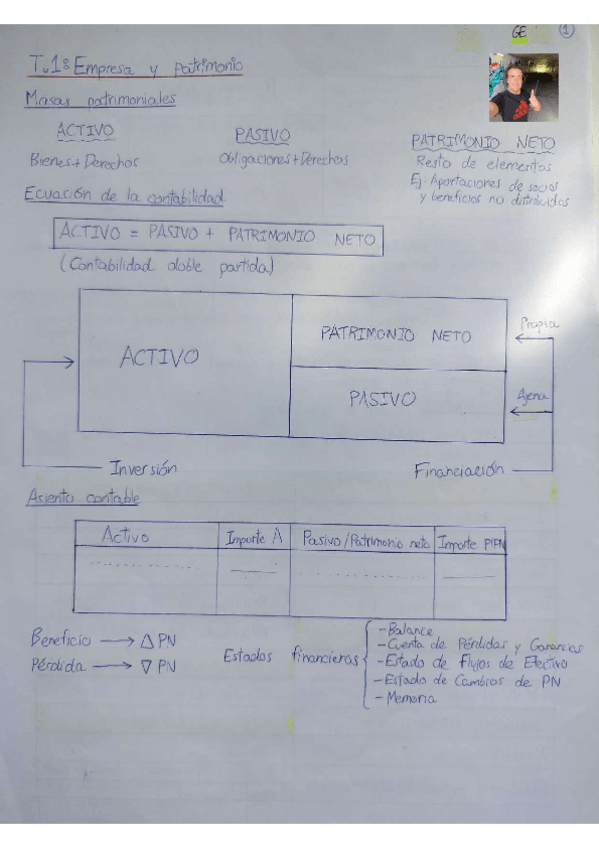 GE 1
T.1: Empresa y patrimonio
Masas patrimoniales
ACTIVO PASIVO PATRIMONIO NETO
Bienes + Derechos Obligaciones + Derechos Resto de elementos
Ej. Aportaciones de socios
y beneficios no distribuidos
Ecuación de la contabilidad
ACTIVO = PASIVO + PATRIMONIO NETO
(Contabilidad doble partida)
ACTIVO PATRIMONIO NETO Propia
PASIVO Ajena
Inversión Financiación
Asiento contable
Activo Importe A Pasivo/Patrimonio neto Importe P/PN
Beneficio → △ PN
Pérdida → ▽ PN
Estados financieros
- Balance
- Cuenta de Pérdidas y Ganancias
- Estado de Flujos de Efectivo
- Estado de Cambios de PN
- Memoria